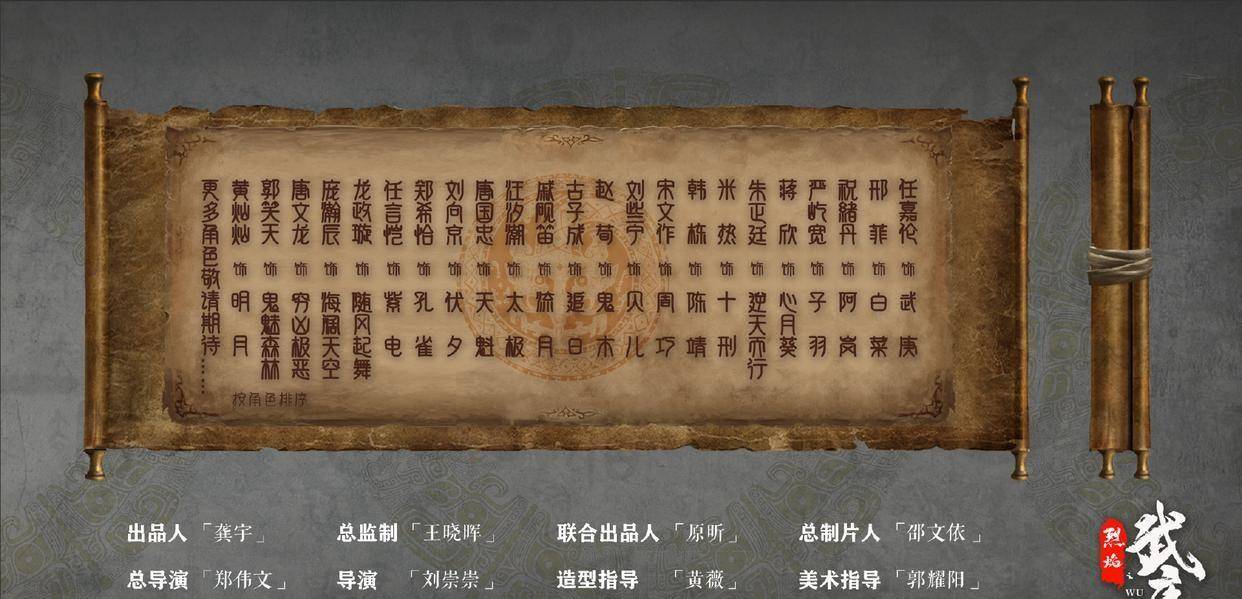 任嘉伦 饰 武庚
邢菲 饰 白菜
祝绪丹 饰 阿岚
严屹宽 饰 子羽
蒋欣 饰 心月葵
朱正廷 饰 逆天而行
米热 饰 十刑
韩栋 饰 陈靖
宋文作 饰 周巧
刘些宁 饰 贝儿
赵荀 饰 鬼木
古子成 饰 追日
戚砚笛 饰 流月
汪汐潮 饰 太极
唐国忠 饰 天魁
刘向京 饰 伏夕
郑希怡 饰 孔雀
任言恺 饰 紫电
龙政璇 饰 随风起舞
庞瀚辰 饰 海阔天空
唐文龙 饰 穷凶极恶
郭笑天 饰 鬼魅森林
黄灿灿 饰 明月
更多角色敬请期待……
按角色排序
出品人「龚宇」 总监制「王晓晖」 联合出品人「原昕」 总制片人「邵文依」
总导演「郑伟文」 导演「刘崇崇」 造型指导「黄薇」 美术指导「郭耀阳」
烈焰
武
WU